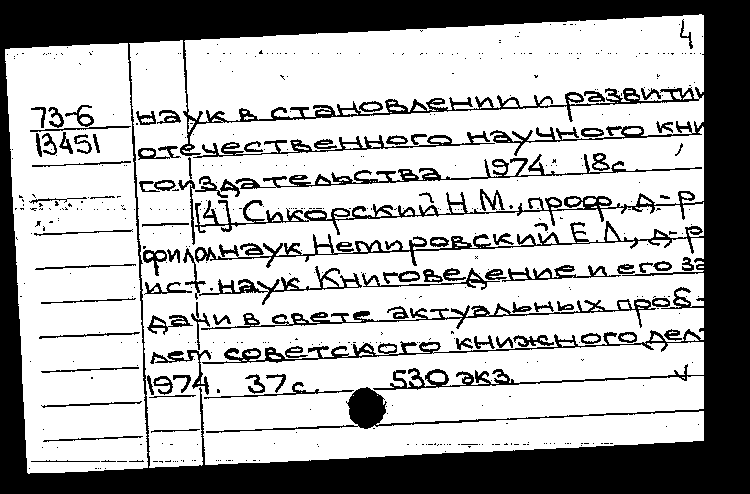 4
73-6 наук в становлении и развитии
13451 отечественного научного кни
гоиздательства. 1974. 18с.
[4]. Сикорский Н.М., проф., д-р
филол.наук, Немировский Е.Л., д-р
ист.наук. Книговедение и его за
дачи в свете актуальных проб-
лем советского книжного дела
1974. 37с. 530 экз.